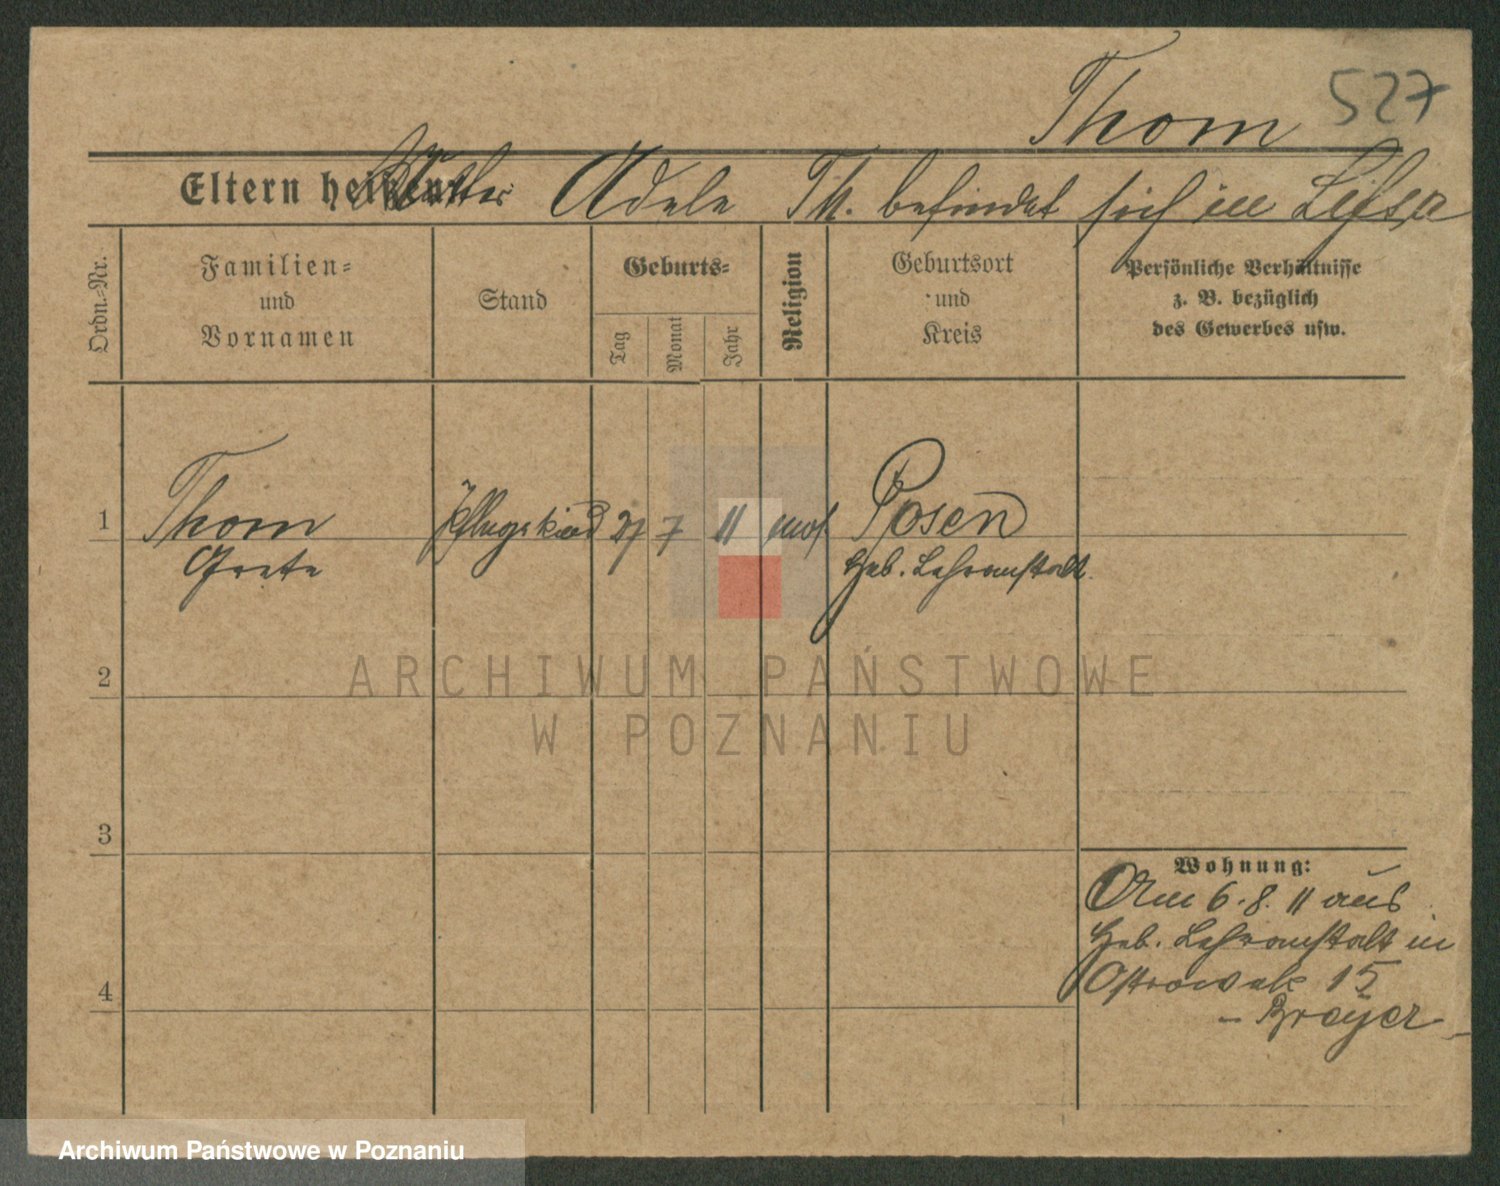 Thom 527
Eltern heißen: Mutter Adele Th. befindet sich in Lissa
Ordn.-Nr.
Familien-
und
Vornamen
Stand
Geburts-
Tag
Monat
Jahr
Religion
Geburtsort
und
Kreis
Persönliche Verhältnisse
z. B. bezüglich
des Gewerbes usw.
1
Thom
Grete
Pflegekind
27
7
11
mos.
Posen
Heb. Lehranstalt
2
3
4
Wohnung:
Am 6.8.11 aus
Heb. Lehranstalt in
Ostrowek 15
- Breyer -
ARCHIWUM PAŃSTWOWE
W POZNANIU
Archiwum Państwowe w Poznaniu